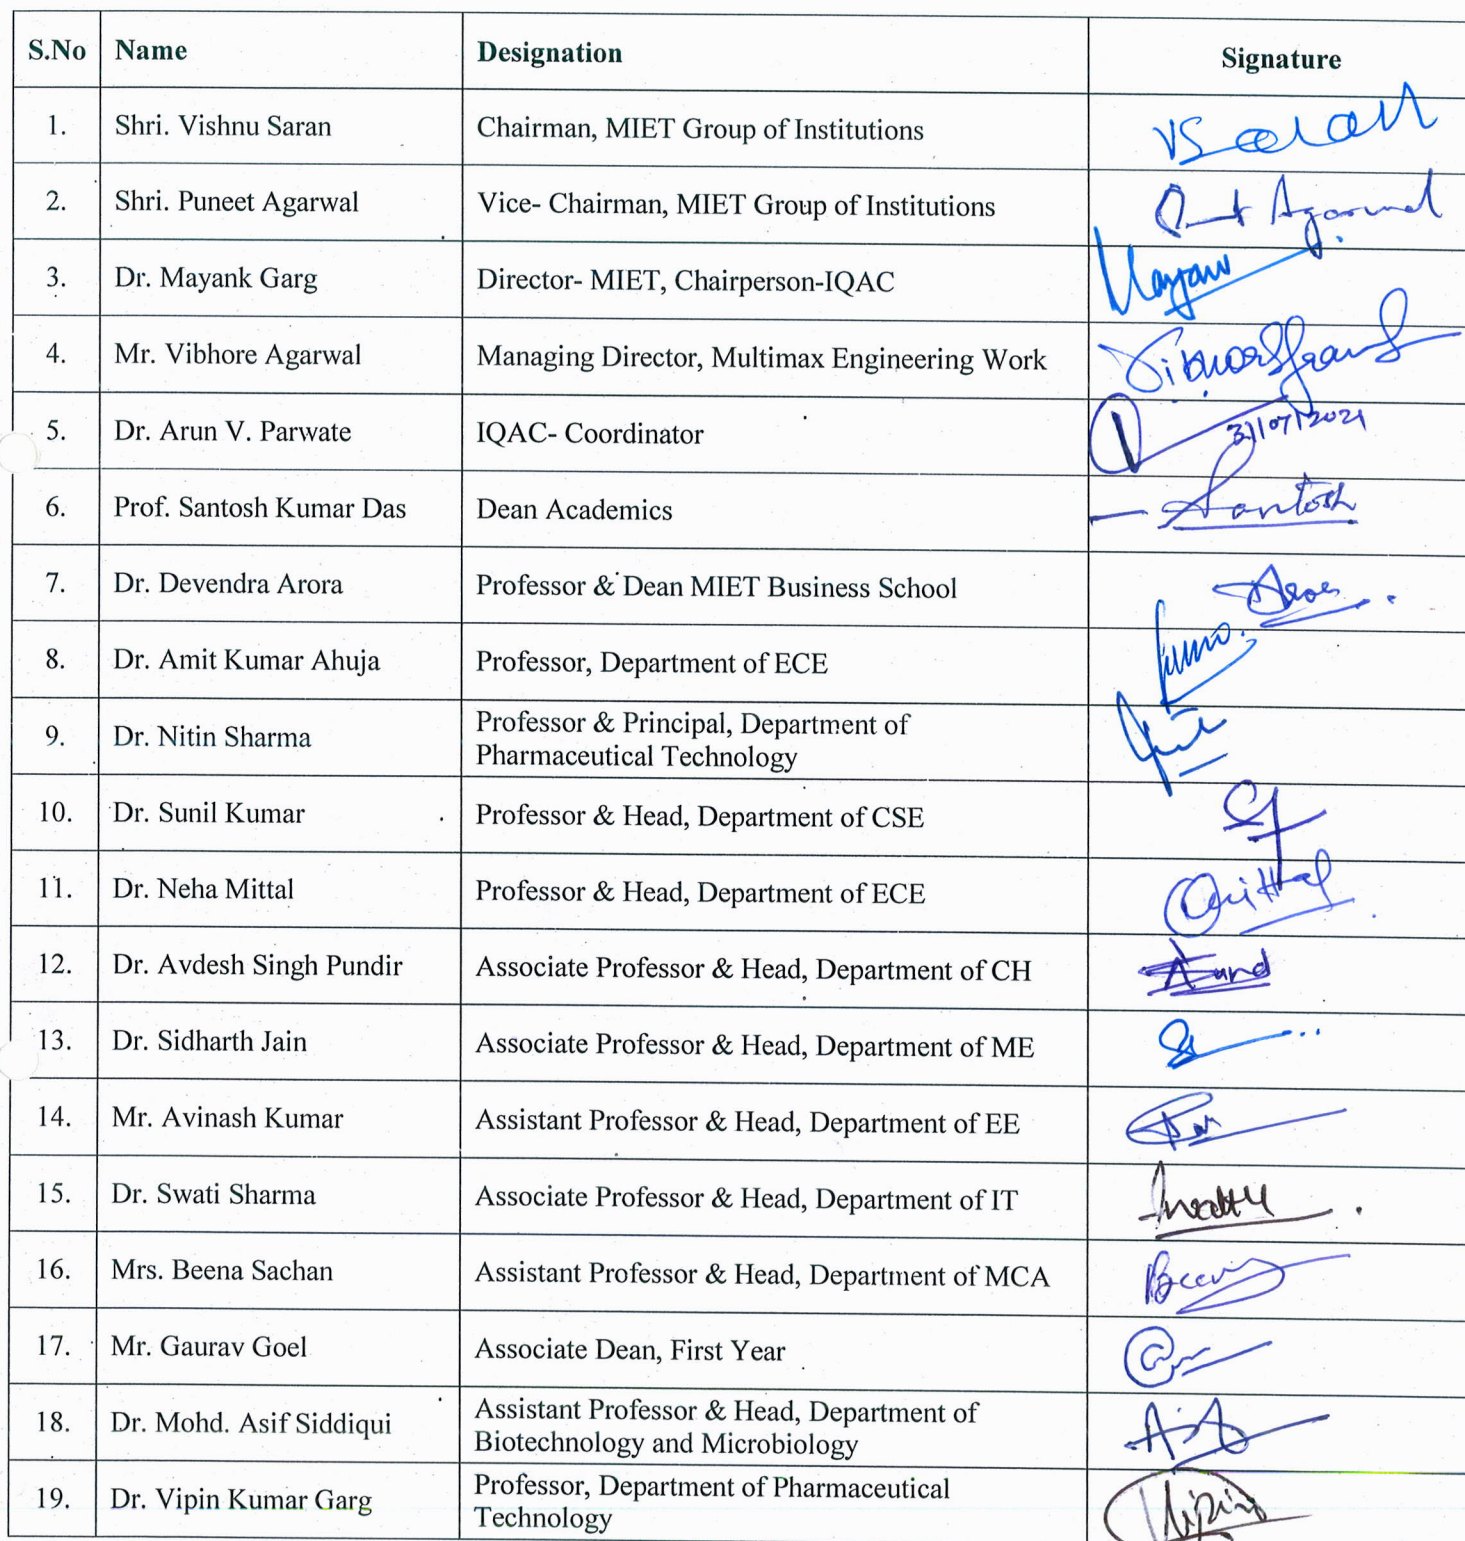 S.No Name Designation Signature
1. Shri. Vishnu Saran Chairman, MIET Group of Institutions VSaran
2. Shri. Puneet Agarwal Vice- Chairman, MIET Group of Institutions Agarwal
3. Dr. Mayank Garg Director- MIET, Chairperson-IQAC
4. Mr. Vibhore Agarwal Managing Director, Multimax Engineering Work
5. Dr. Arun V. Parwate IQAC- Coordinator 31/07/2021
6. Prof. Santosh Kumar Das Dean Academics Santosh
7. Dr. Devendra Arora Professor & Dean MIET Business School
8. Dr. Amit Kumar Ahuja Professor, Department of ECE
9. Dr. Nitin Sharma Professor & Principal, Department of
Pharmaceutical Technology
10. Dr. Sunil Kumar Professor & Head, Department of CSE
11. Dr. Neha Mittal Professor & Head, Department of ECE
12. Dr. Avdesh Singh Pundir Associate Professor & Head, Department of CH
13. Dr. Sidharth Jain Associate Professor & Head, Department of ME
14. Mr. Avinash Kumar Assistant Professor & Head, Department of EE
15. Dr. Swati Sharma Associate Professor & Head, Department of IT
16. Mrs. Beena Sachan Assistant Professor & Head, Department of MCA
17. Mr. Gaurav Goel Associate Dean, First Year
18. Dr. Mohd. Asif Siddiqui Assistant Professor & Head, Department of
Biotechnology and Microbiology
19. Dr. Vipin Kumar Garg Professor, Department of Pharmaceutical
Technology